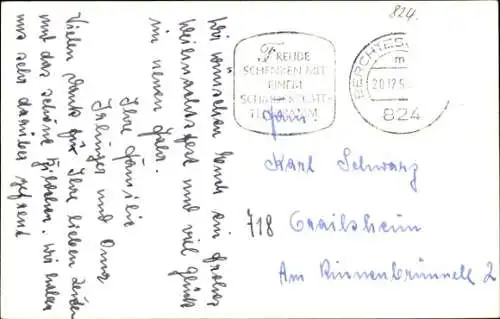 824.
FREUDE
SCHENKEN MIT
EINEM
BERCHTES
20.12.5
824
Wir wünschen Euch ein frohes
Weihnachtsfest und viel Glück
im neuen Jahr.
Ihre Familie
und Oma
Vielen Dank für Ihre lieben Zeilen
und das schöne Bildchen. Wir haben
uns sehr darüber gefreut
Fam.
Karl Schwarz
718 Crailsheim
Am Rinnenbrünnele 2